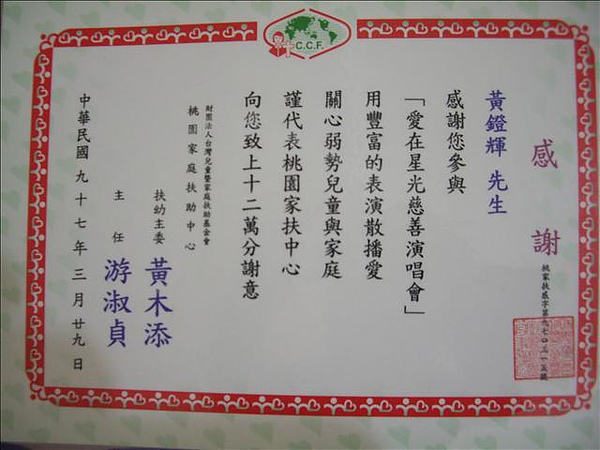 C.C.F.
感謝
桃家扶感字第九七〇三一五號
黃鐙輝 先生
感謝您參與
「愛在星光慈善演唱會」
用豐富的表演散播愛
關心弱勢兒童與家庭
謹代表桃園家扶中心
向您致上十二萬分謝意
財團法人台灣兒童暨家庭扶助基金會
桃園家庭扶助中心
扶幼主委 黃木添
主任 游淑貞
中華民國九十七年三月廿九日